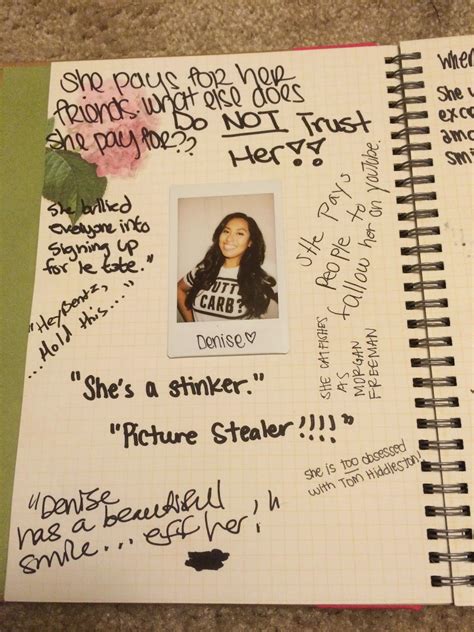 She pays for her
friends. what else does
she pay for??
Do NOT Trust
Her!!
She bullied
everyone into
signing up
for le tote."
"Hey Bentz,
... Hold this...."
BUTTER
CARB?
Denise♡
She Pays
People to
follow her on youtube.
SHE CATFISHES
AS
MORGAN
FREEMAN
"She's a stinker."
"Picture Stealer!!!!"
She is too obsessed
with Tom Hiddleston!
"Denise
has a beautiful
smile... eff her!"
When
She w
exce
ama
smi